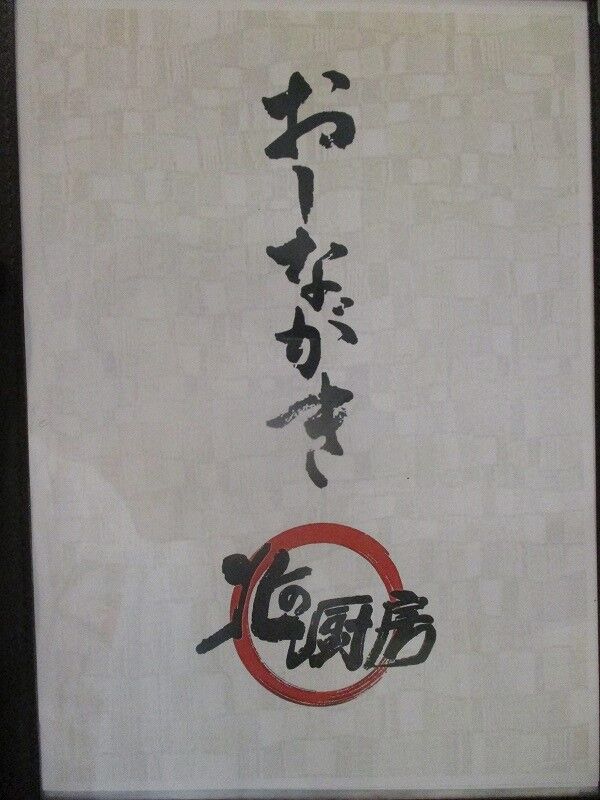 おしながき
北の厨房